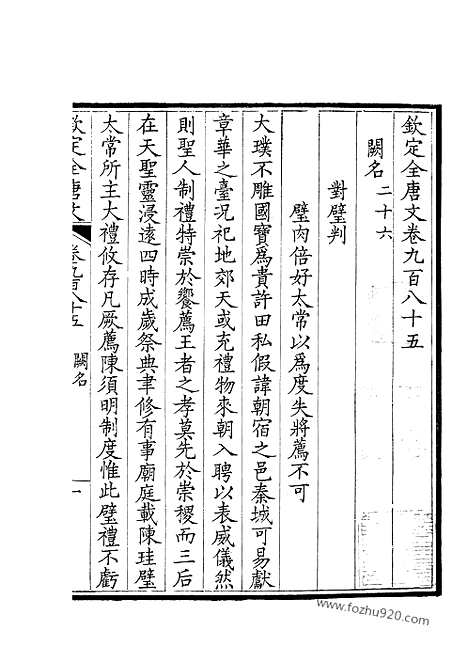 欽定全唐文卷九百八十五
闕名二十六
對璧判
璧肉倍好太常以爲度失將薦不可
大璞不雕國寶爲貴許田私假諱朝宿之邑秦城可易獻
章華之臺况祀地郊天或充禮物來朝入聘以表威儀然
則聖人制禮特崇於饗薦王者之孝莫先於崇稷而三后
在天聖靈浸遠四時成歲祭典聿修有事廟庭載陳珪璧
太常所主大禮攸存凡厥薦陳須明制度惟此璧禮不虧
欽定全唐文 卷九百八十五 闕名 一
www.fozhu920.com